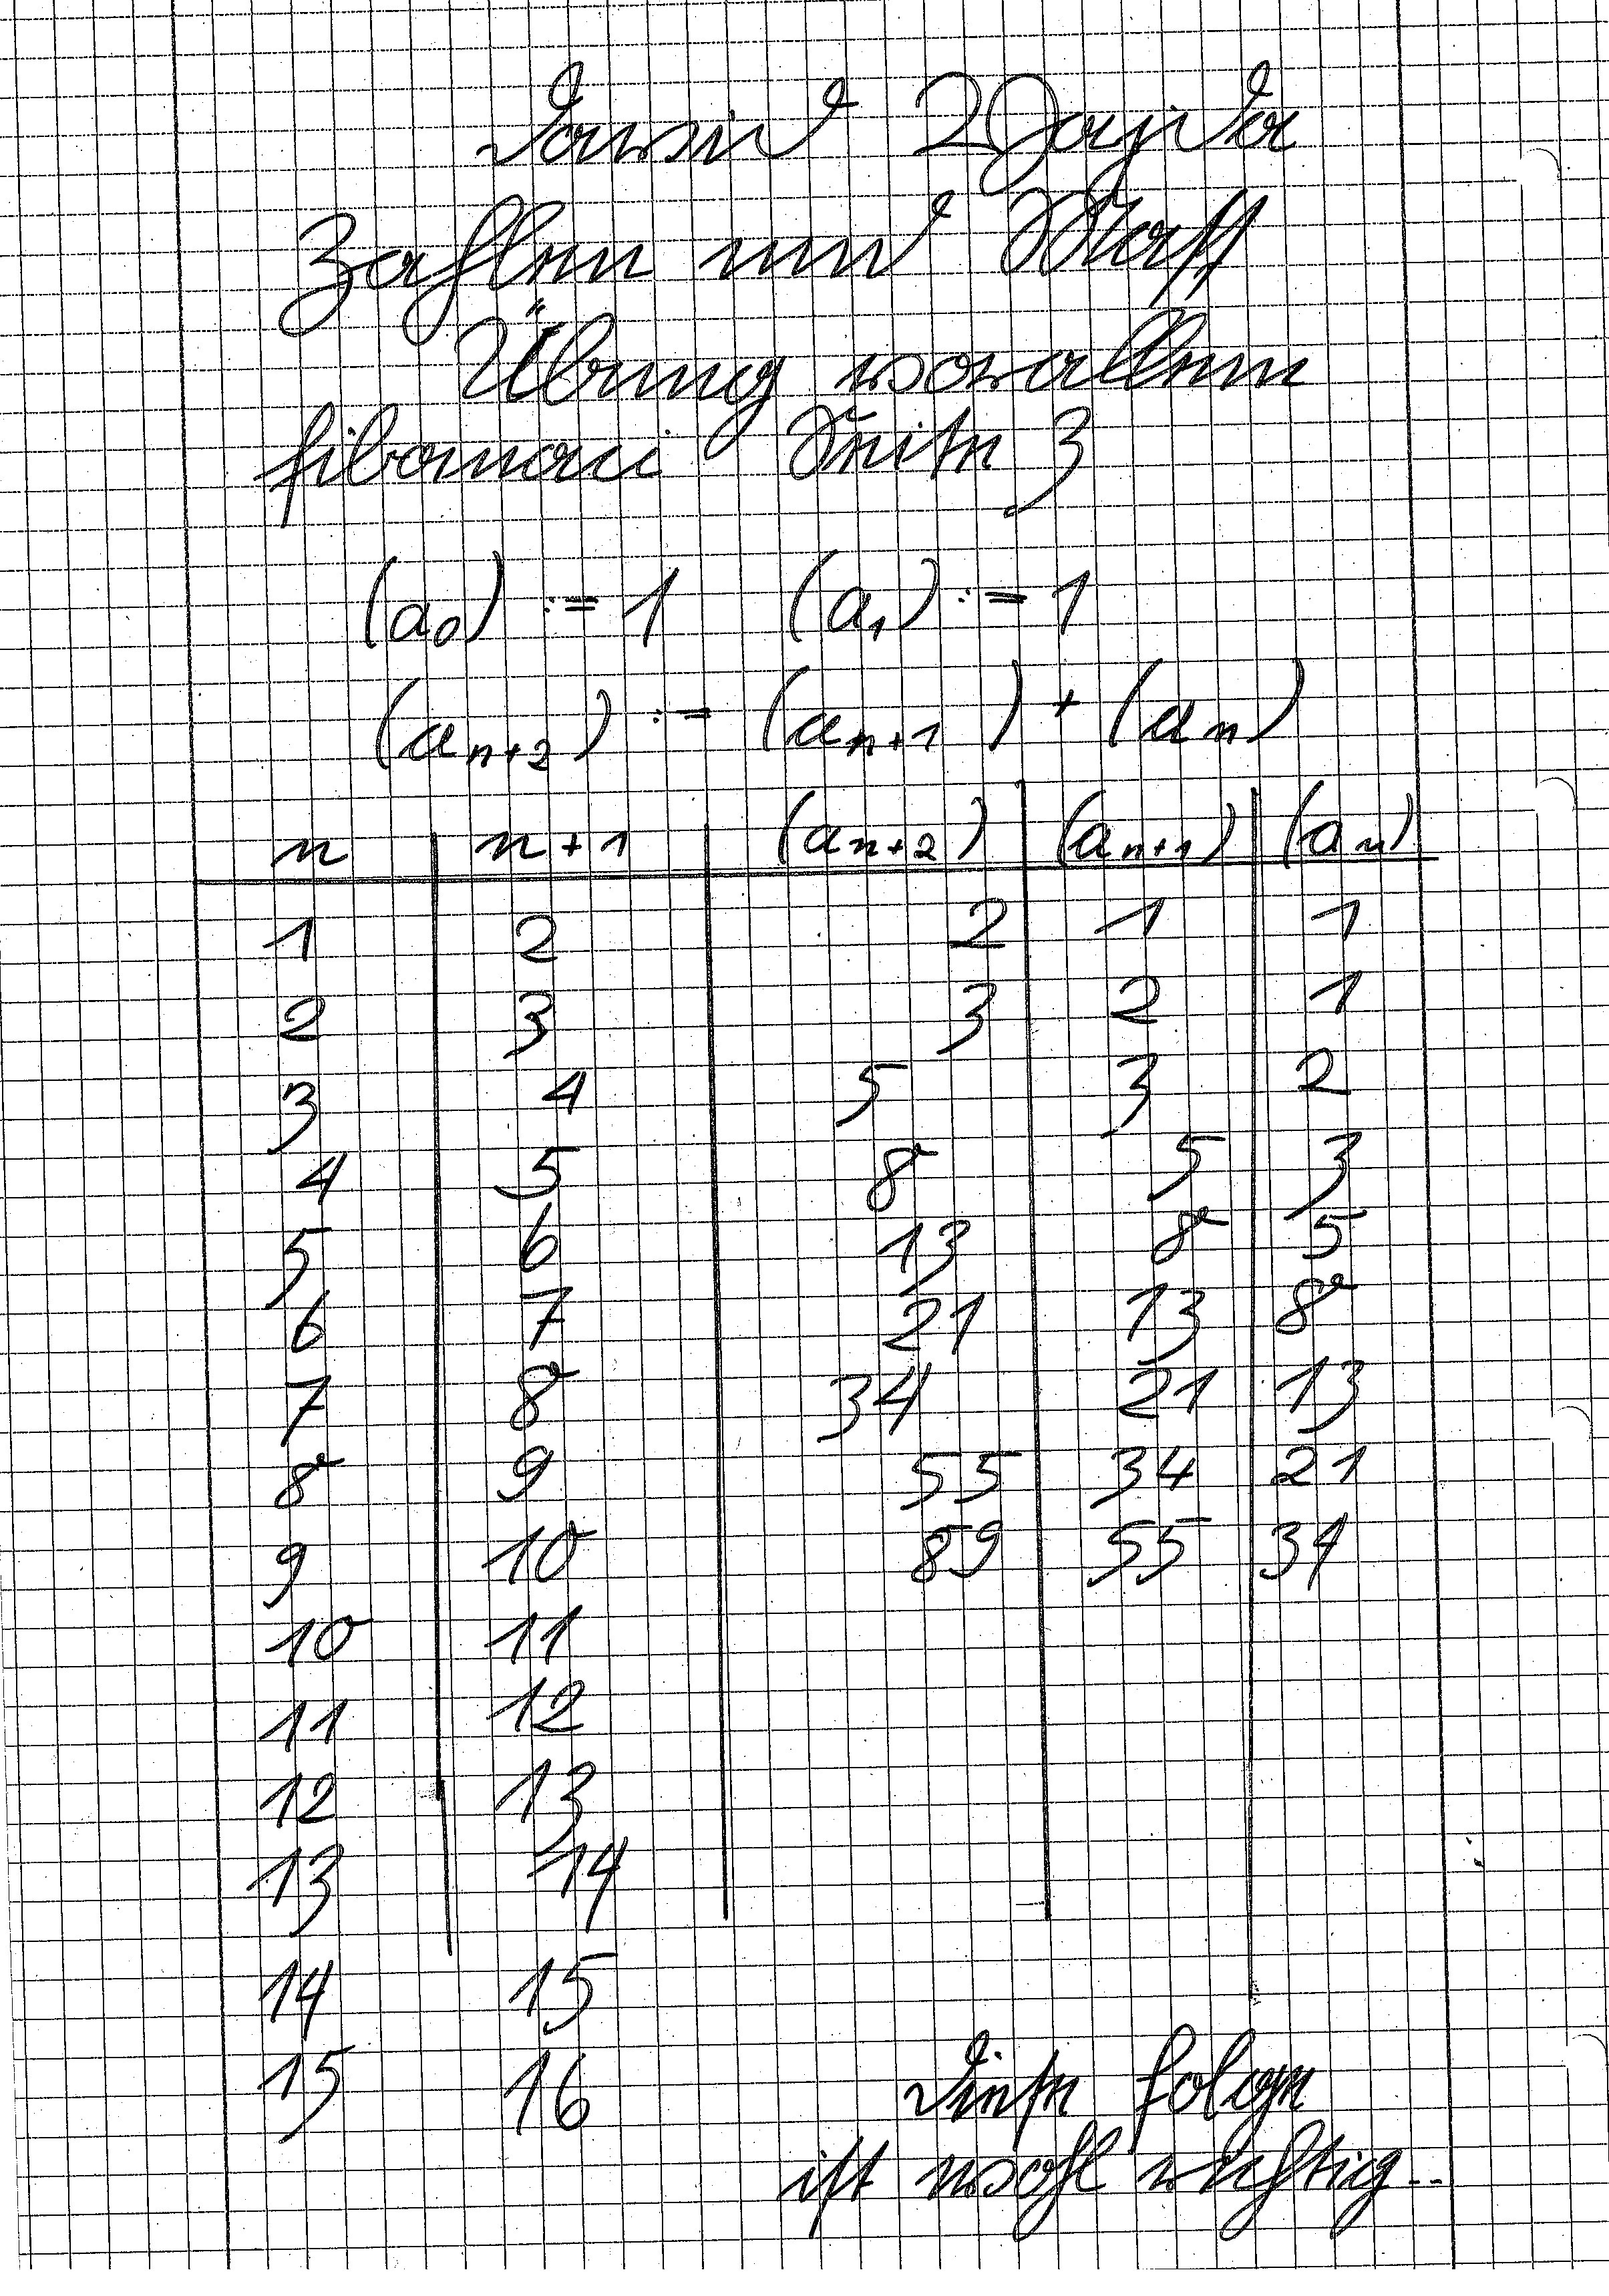 Dawid Wajda
Zahlen und Stoff
Übung vor allem
fibonaci Seite 3
(a₀) := 1 (a₁) := 1
(aₙ₊₂) := (aₙ₊₁) + (aₙ)
n n+1 (aₙ₊₂) (aₙ₊₁) (aₙ)
1 2 2 1 1
2 3 3 2 1
3 4 5 3 2
4 5 8 5 3
5 6 13 8 5
6 7 21 13 8
7 8 34 21 13
8 9 55 34 21
9 10 89 55 34
10 11
11 12
12 13
13 14
14 15
15 16
Diese Folge
ist wohl wichtig..